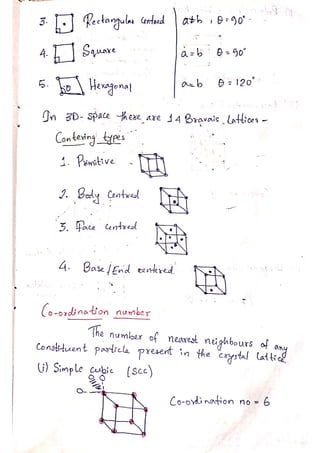 3. Rectangular Centred a≠b, θ=90°
4. Square a=b θ=90°
5. 120 Hexagonal a=b θ=120°
In 3D-Space there are 14 Bravais Lattices -
Centering types
1. Primitive
2. Body Centred
3. Face Centred
4. Base/End centered
Co-ordination number
The number of nearest neighbours of any
Constituent particle present in the crystal lattice
(i) Simple cubic (SCC)
Co-ordination no = 6